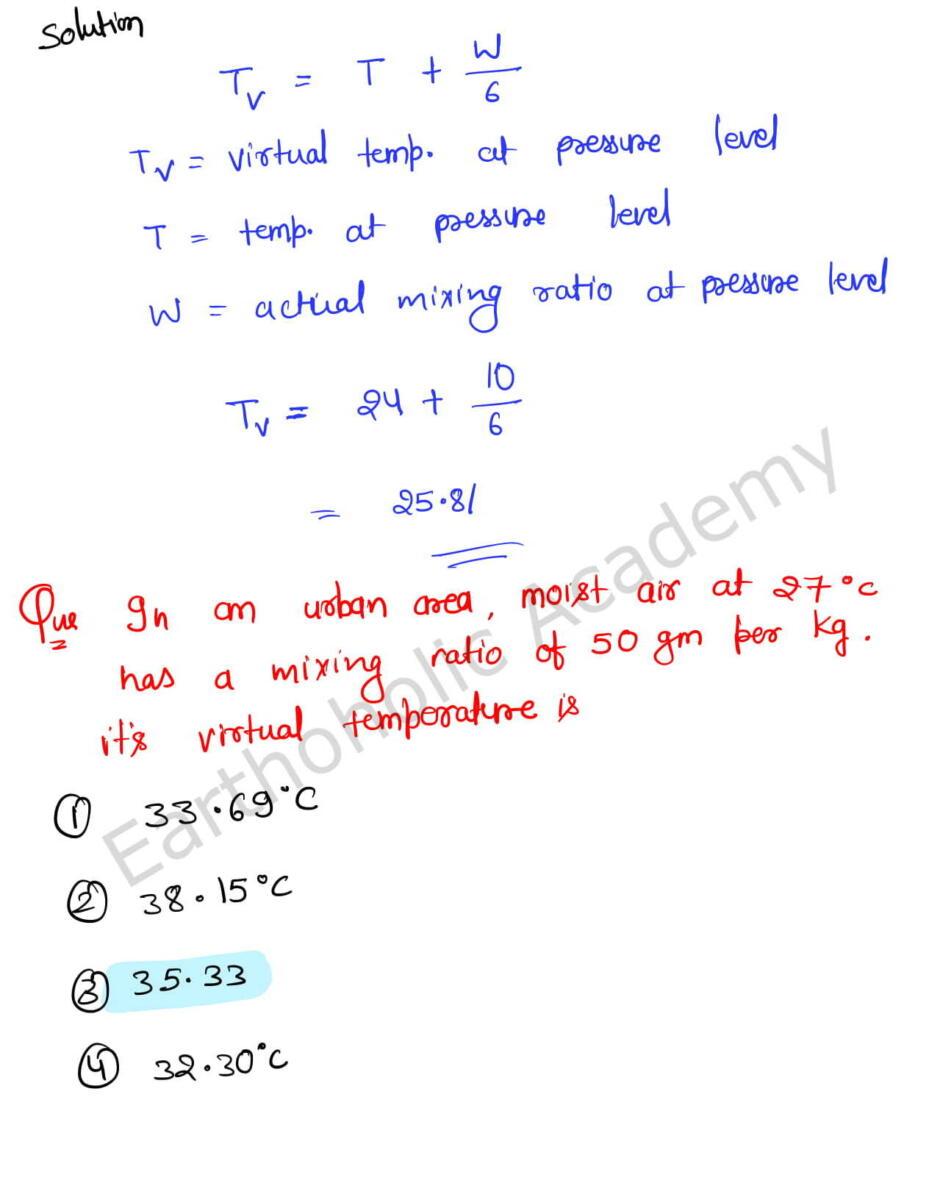 Solution
Tv = T + W/6
Tv = virtual temp. at pressure level
T = temp. at pressure level
W = actual mixing ratio at pressure level
Tv = 24 + 10/6
= 25.81
Que In an urban area, moist air at 27°c
has a mixing ratio of 50 gm per kg.
it's virtual temperature is
① 33.69°C
② 38.15°C
③ 35.33
④ 32.30°C
Earthoholic Academy